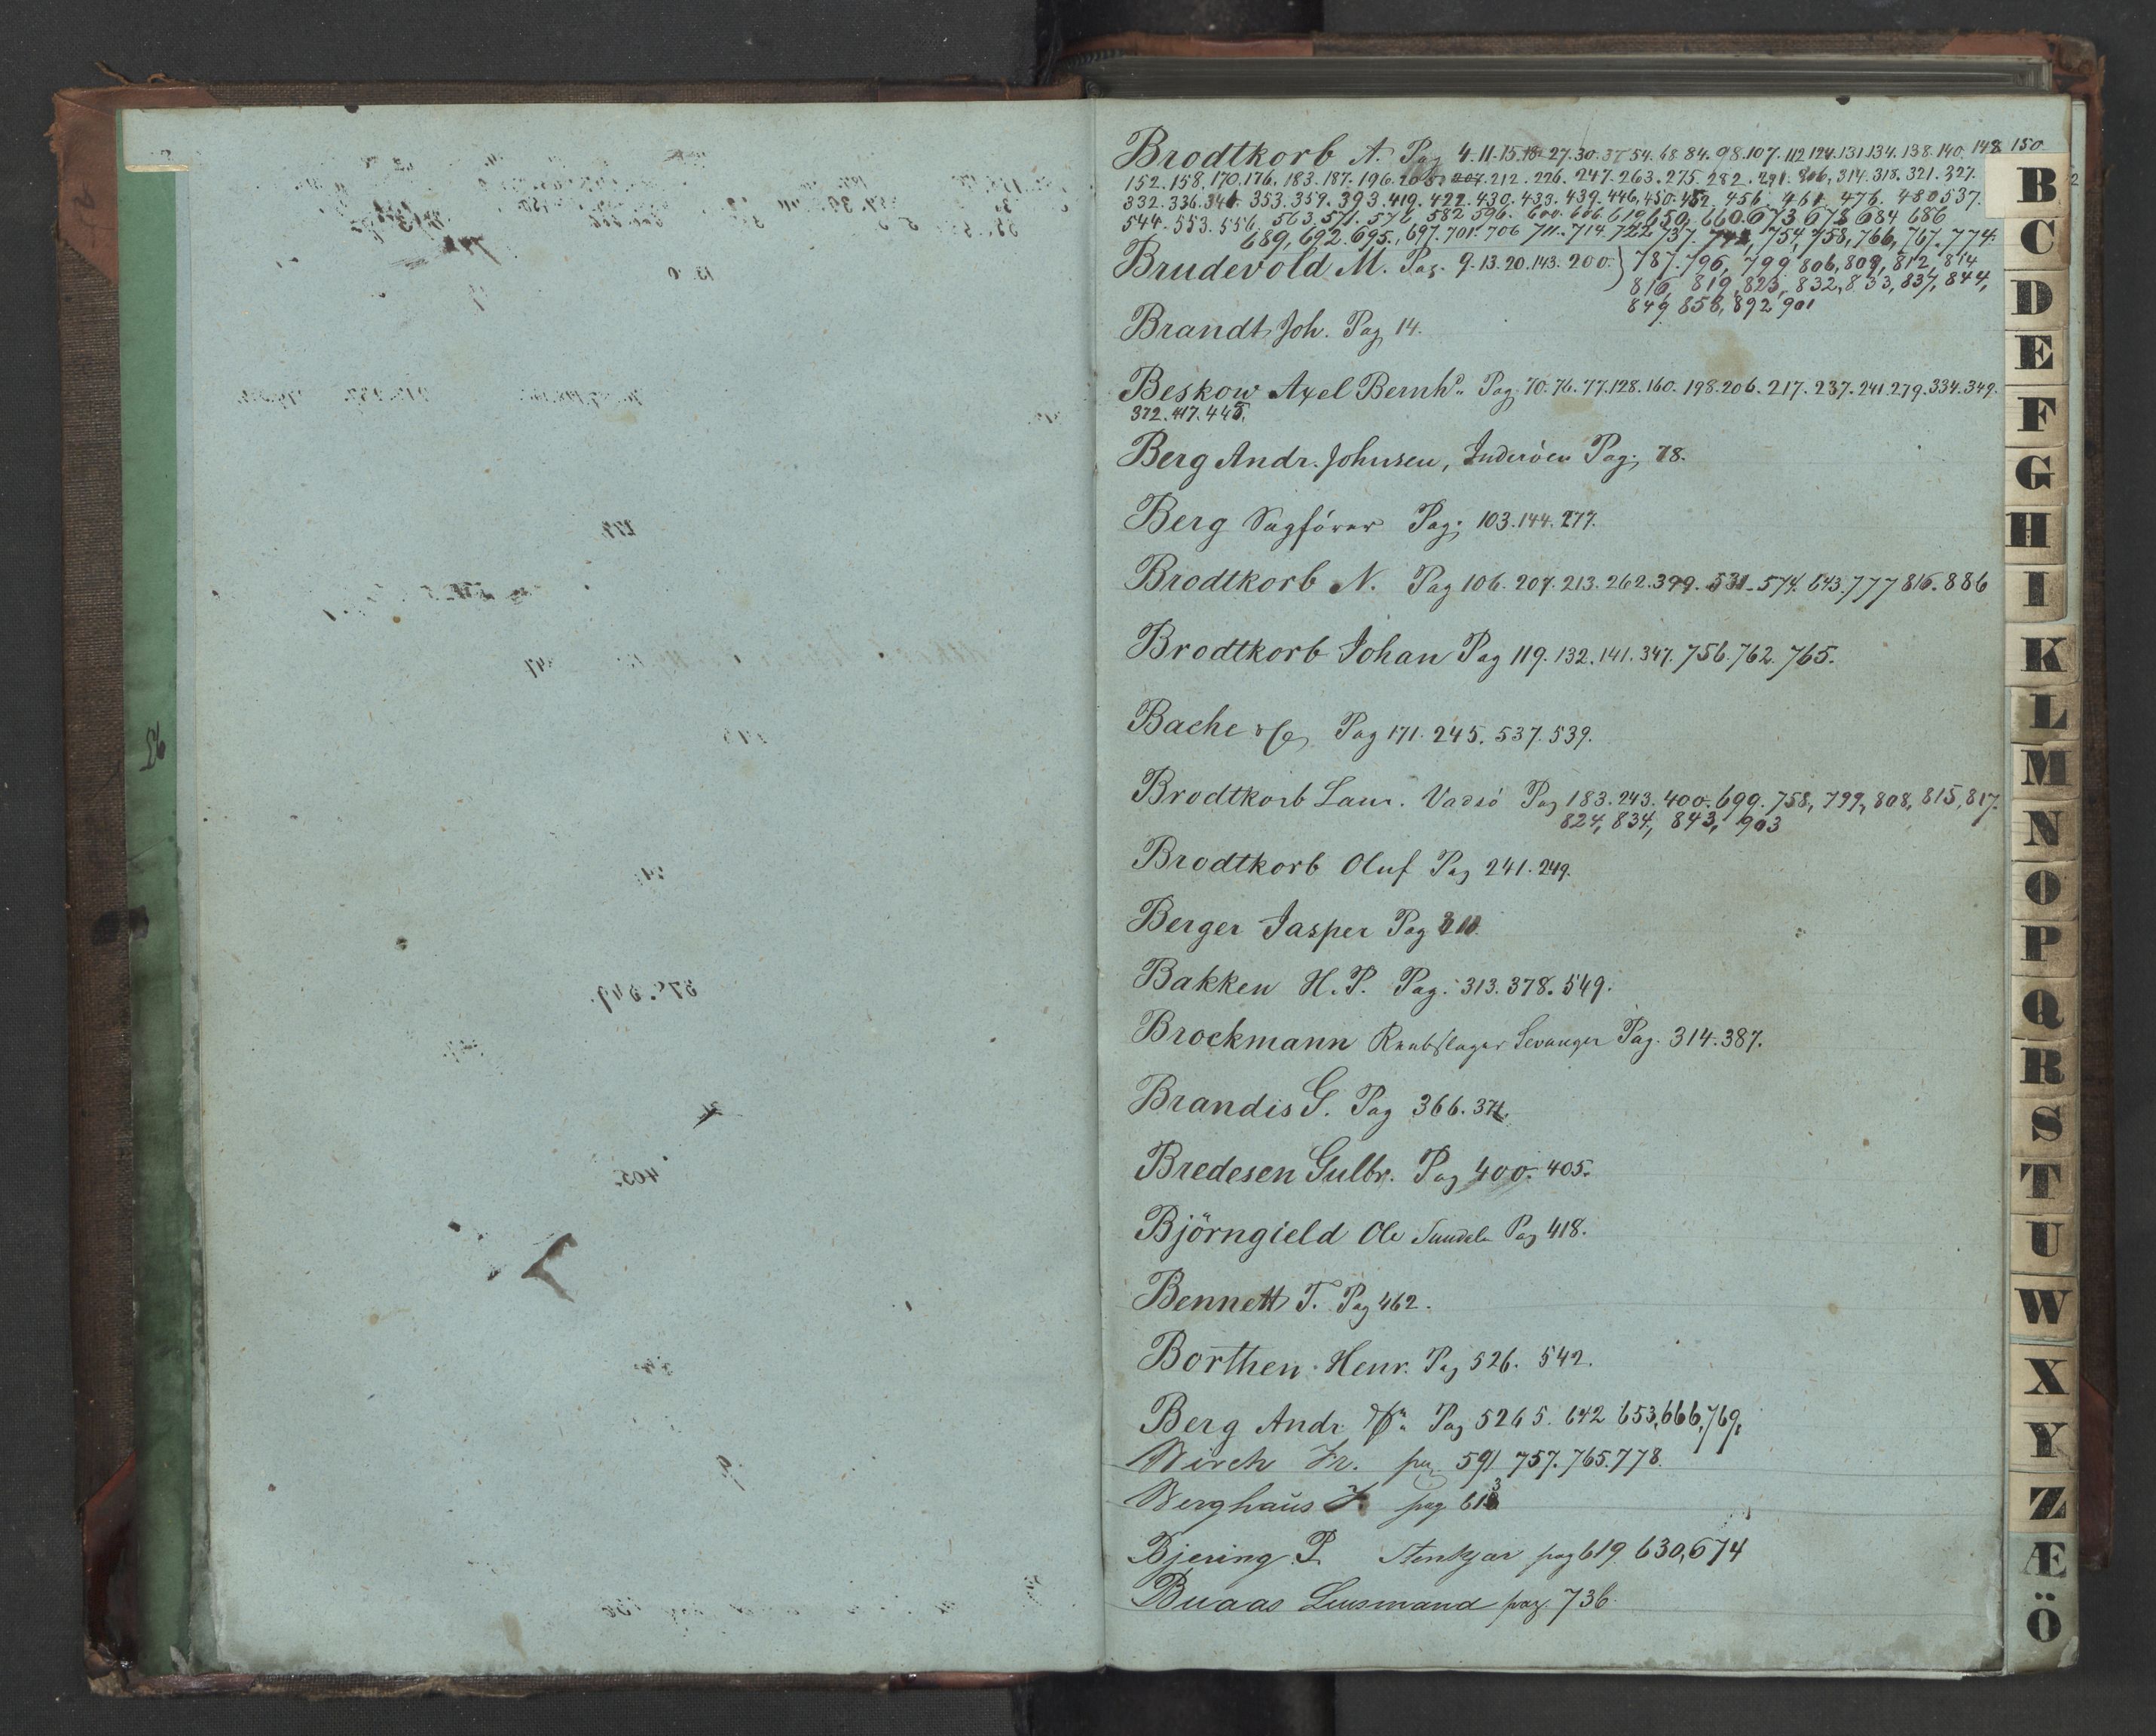 Brodtkorb A. Pag 4.11.15.18.27.30.37.54.68.84.98.107.112.124.131.134.138.140.148.150
152.158.170.176.183.187.196.205.207.212.226.247.263.275.282.291.306.314.318.321.327.
332.336.346.353.359.393.419.422.430.433.439.446.450.452.456.461.476.480.537.
544.553.556.563.571.576.582.596.600.606.610.650.660.673.678.684.686
689,692.695.,697.701.706.711.714.722.737.742,754,758,766,767.774.
Brudevold M. Pag. 9.13.20.143.200. 787.796,799.806,809,812,814
816,819,823,832,833,837,844,
849.858,892,901
Brandt Joh. Pag 14.
Beskow Axel Bernhd. Pag. 70.76.77.128.160.198.206.217.237.241.279.334.349.
372.417.445.
Berg Andr. Johnsen, Inderöen Pag; 78.
Berg Sagförer Pag; 103.144.277.
Brodtkorb N. Pag 106.207.213.262.399.531.574.643.777.816.886
Brodtkorb Johan Pag 119.132.141.347.756.762.765.
Bache & Co Pag 171.245.537.539.
Brodtkorb Laur. Vadsö Pag 183.243.400.699.758,799,808,815,817.
824,834,843,903
Brodtkorb Oluf Pag 241.249.
Berger Jasper Pag 310.
Bakken H.P. Pag. 313.378.549.
Brockmann Rebslager Levanger Pag. 314.387.
Brandis G. Pag 366.371.
Bredesen Gulbr. Pag 400.405.
Björngield Ole Sundalen Pag 418.
Bennett T. Pag 462.
Borthen Henr. Pag 526.542.
Berg Andr. Pag 526 5. 642 653,666,769,
Birch Fr. pag 591 757.765.778.
Berghaus F. pag. 613
Bjering P. Stenkjær pag 619. 630,674
Buaas Lensmand pag. 736.
B
C
D
E
F
G
H
I
K
L
M
N
O
P
Q
R
S
T
U
W
X
Y
Z
Æ
Ö